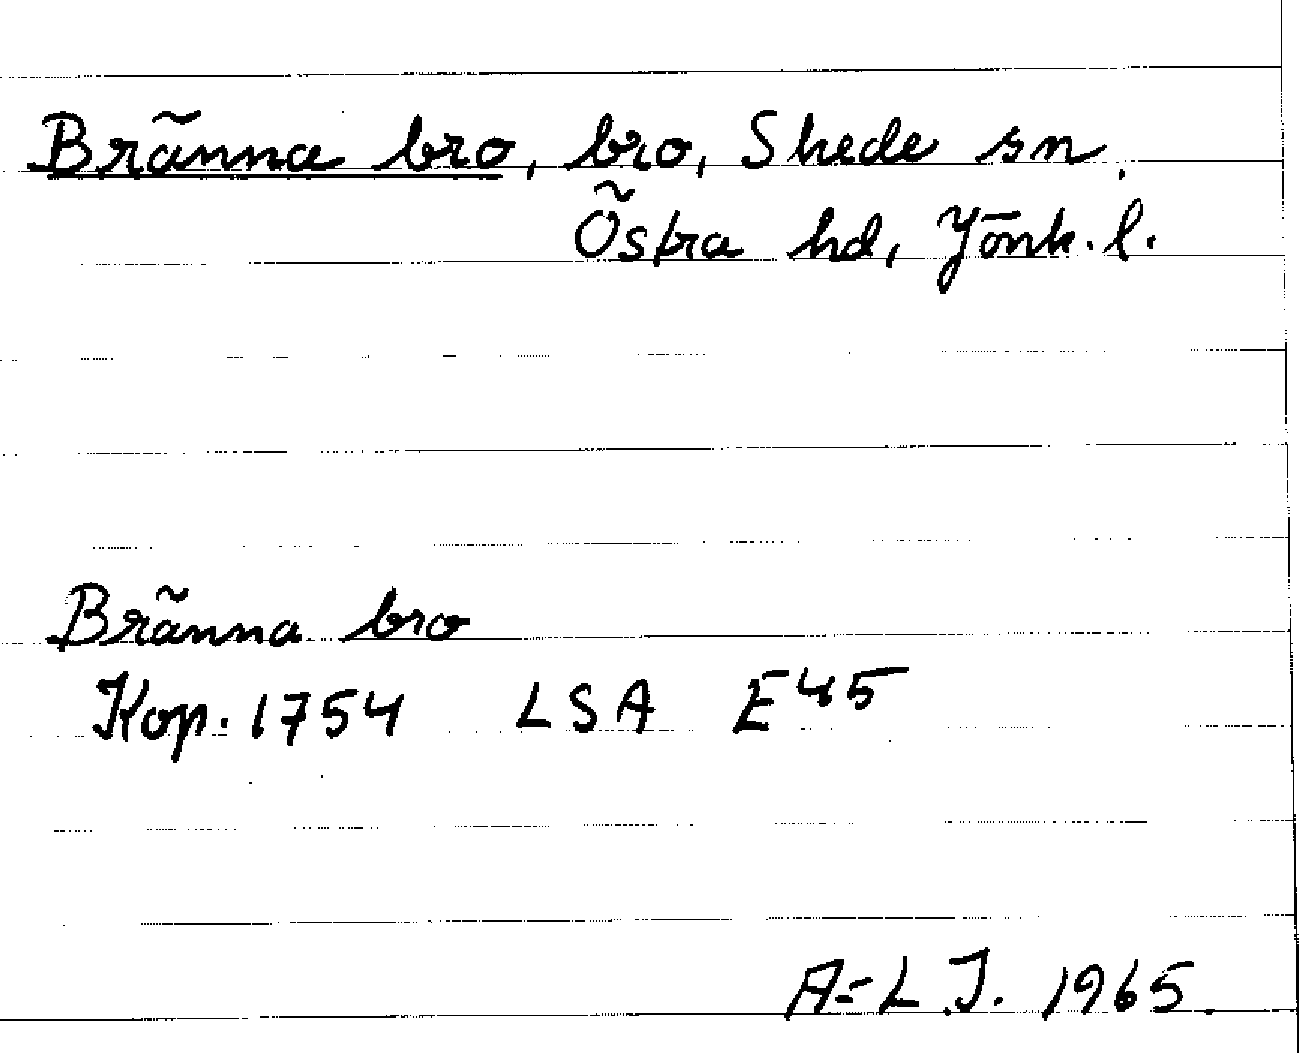 Bränna bro, bro, Skede sn,
Östra hd, Jönk. l.
Bränna bro
Kop. 1754 LSA E45
A-L.J. 1965.